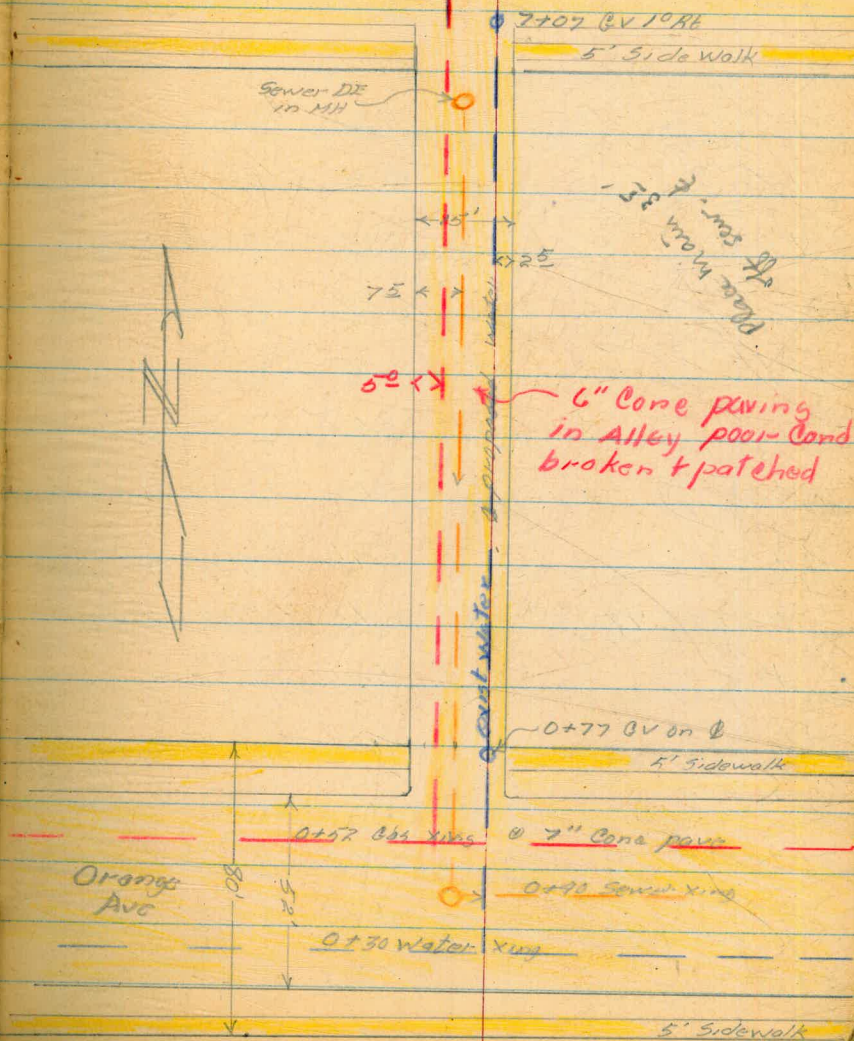 7+07 GV 1º Rt
5' Side Walk
Sewer DE
in MH
15'
2 5
7 5
Place main 3 5'
off sewer
5 0
6" Conc paving
in Alley poor Cond
broken + patched
exist water & proposed water
N
0+77 GV on ℄
5' Sidewalk
0+52 Gas xing
7" Conc pave
Orange
Ave
80'
52'
0+40 Sewer xing
0+30 Water xing
5' Sidewalk